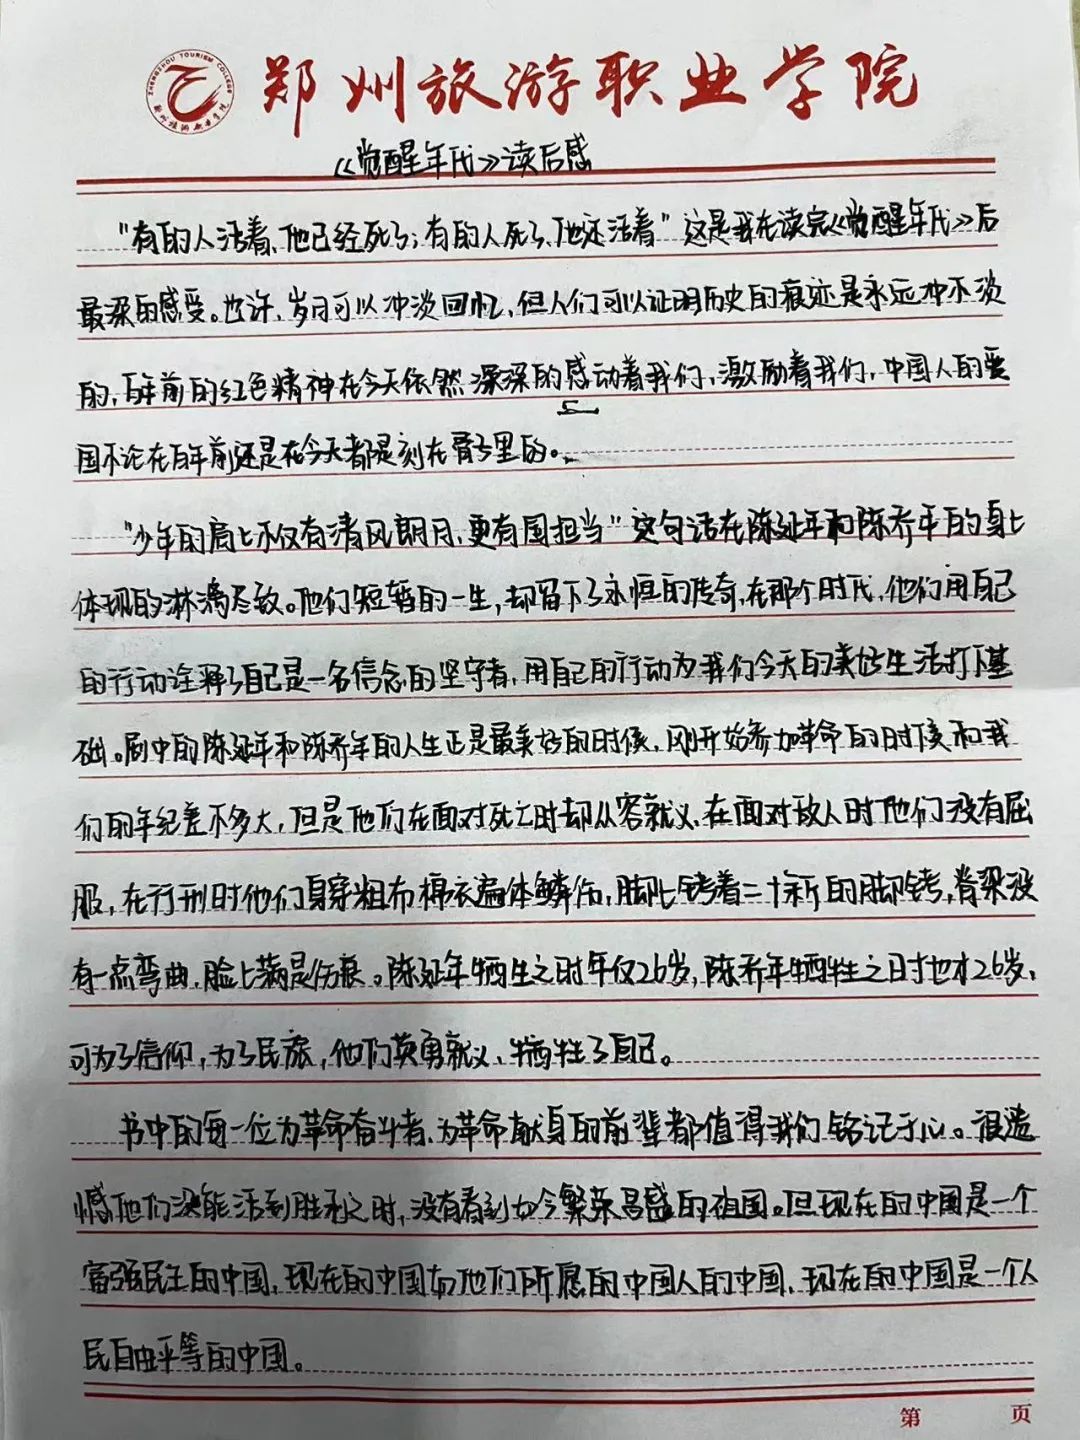 ZHENGZHOU TOURISM COLLEGE
郑州旅游职业学院
郑州旅游职业学院
《觉醒年代》读后感
“有的人活着，他已经死了；有的人死了，他还活着”这是我在读完《觉醒年代》后
最深的感受。也许，岁月可以冲淡回忆，但人们可以证明历史的痕迹是永远冲不淡
的，百年前的红色精神在今天依然深深的感动着我们，激励着我们，中国人的爱
国不论在百年前还是在今天都是刻在骨子里的。
“少年的肩上不仅有清风朗月，更有国担当”这句话在陈延年和陈乔年的身上
体现的淋漓尽致。他们短暂的一生，却留下了永恒的传奇，在那个时代，他们用自己
的行动诠释了自己是一名信念的坚守者，用自己的行动为我们今天的美好生活打下基
础。剧中的陈延年和陈乔年的人生正是最美好的时候，刚开始参加革命的时候和我
们的年纪差不多大，但是他们在面对死亡时却从容就义，在面对敌人时他们没有屈
服，在行刑时他们身穿粗布棉衣遍体鳞伤，脚上铐着二十斤的脚铐，脊梁没
有一点弯曲，脸上满是伤痕。陈延年牺牲之时年仅26岁，陈乔年牺牲之时也才26岁，
可为了信仰，为了民族，他们英勇就义，牺牲了自己。
书中的每一位为革命奋斗者，为革命献身的前辈都值得我们铭记于心。很遗
憾他们没能活到胜利之时，没有看到如今繁荣昌盛的祖国。但现在的中国是一个
富强民主的中国，现在的中国有他们所愿的中国人的中国，现在的中国是一个人
民自由平等的中国。
第 页